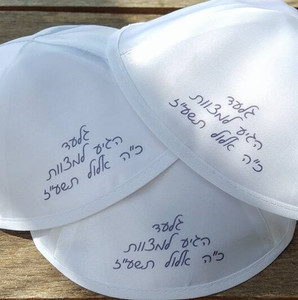 גלעד
הגיע למצוות
כ"ה אלול תשע"ז
גלעד
הגיע למצוות
כ"ה אלול תשע"ז
גלעד
הגיע למצוות
כ"ה אלול תשע"ז